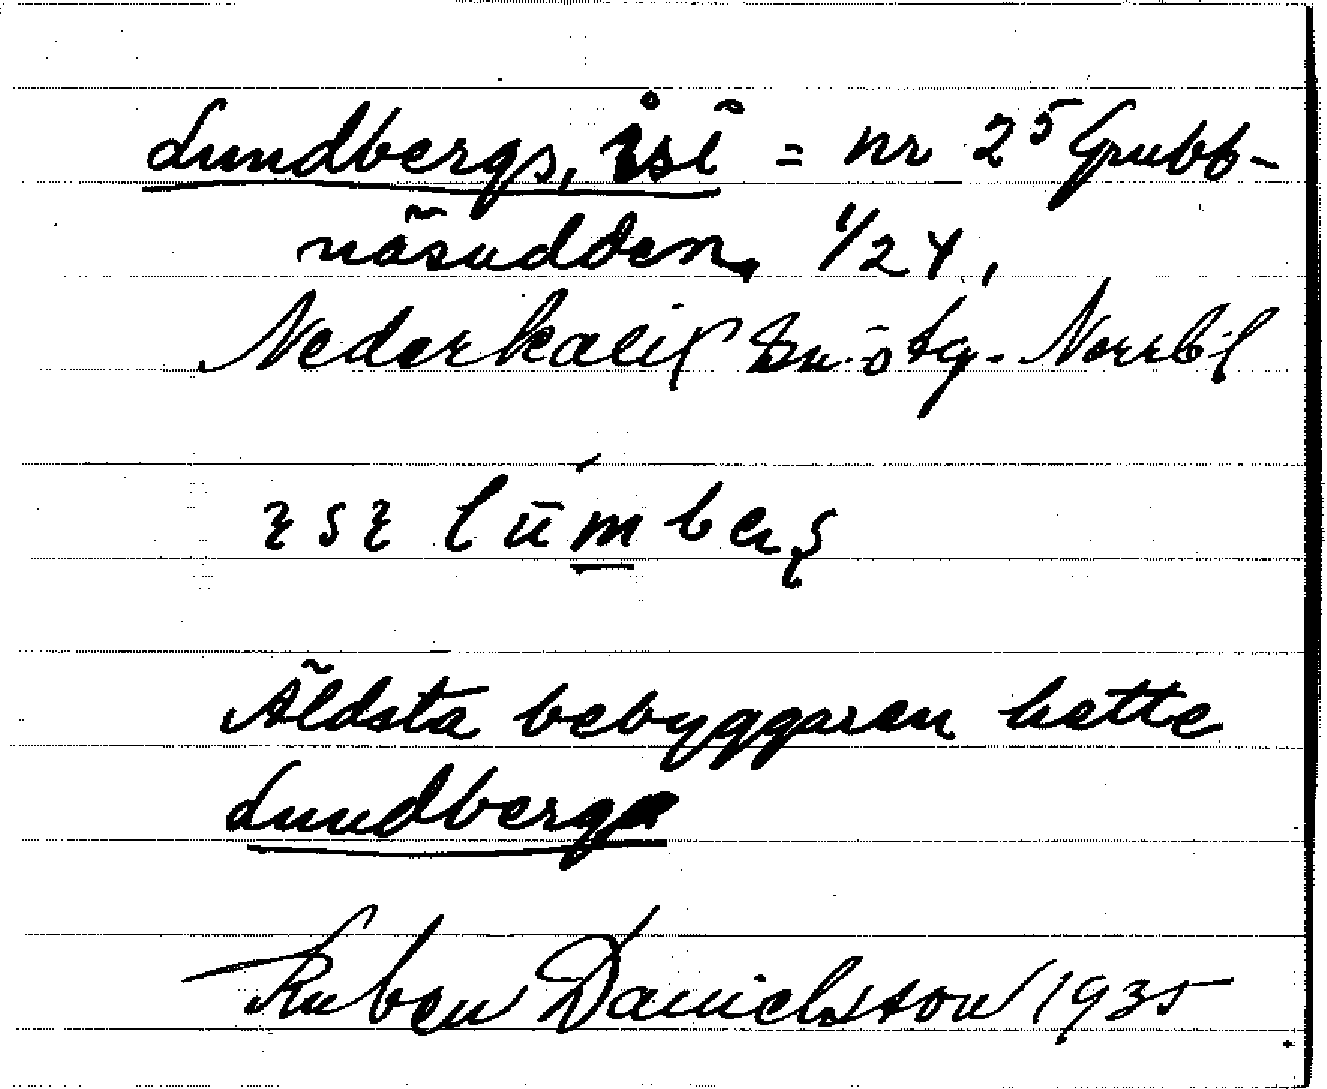 Lundbergs, isi = nr 2⁵ Grubb-
näsudden, 1/24,
Nederkalix sn ö tg. Norrb. l
lūmberg
Äldsta bebyggaren hette
Lundberg
Ruben Danielsson 1935